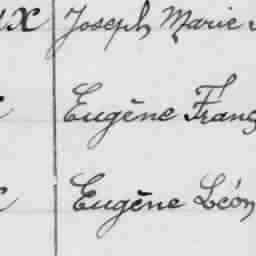 UX Joseph Marie
Eugène Franç
Eugène Léon